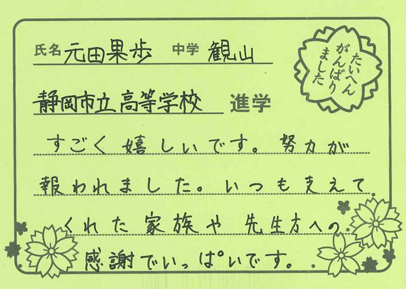 氏名 元田果歩 中学 観山
たいへん
がんばり
ました
静岡市立高等学校 進学
すごく嬉しいです。努力が
報われました。いつも支えて
くれた家族や先生方への
感謝でいっぱいです。